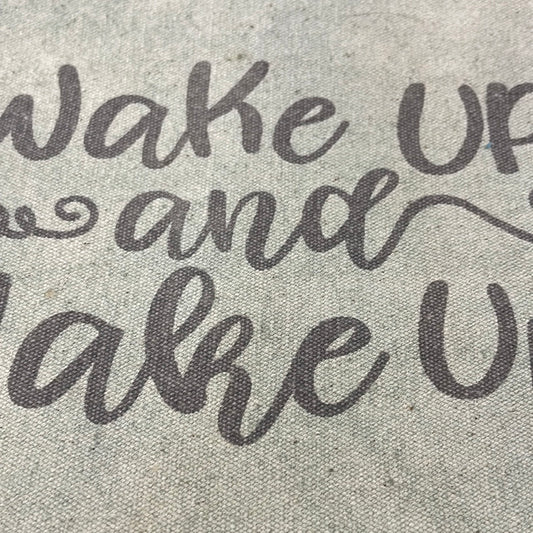 Wake UP
and
Make Up